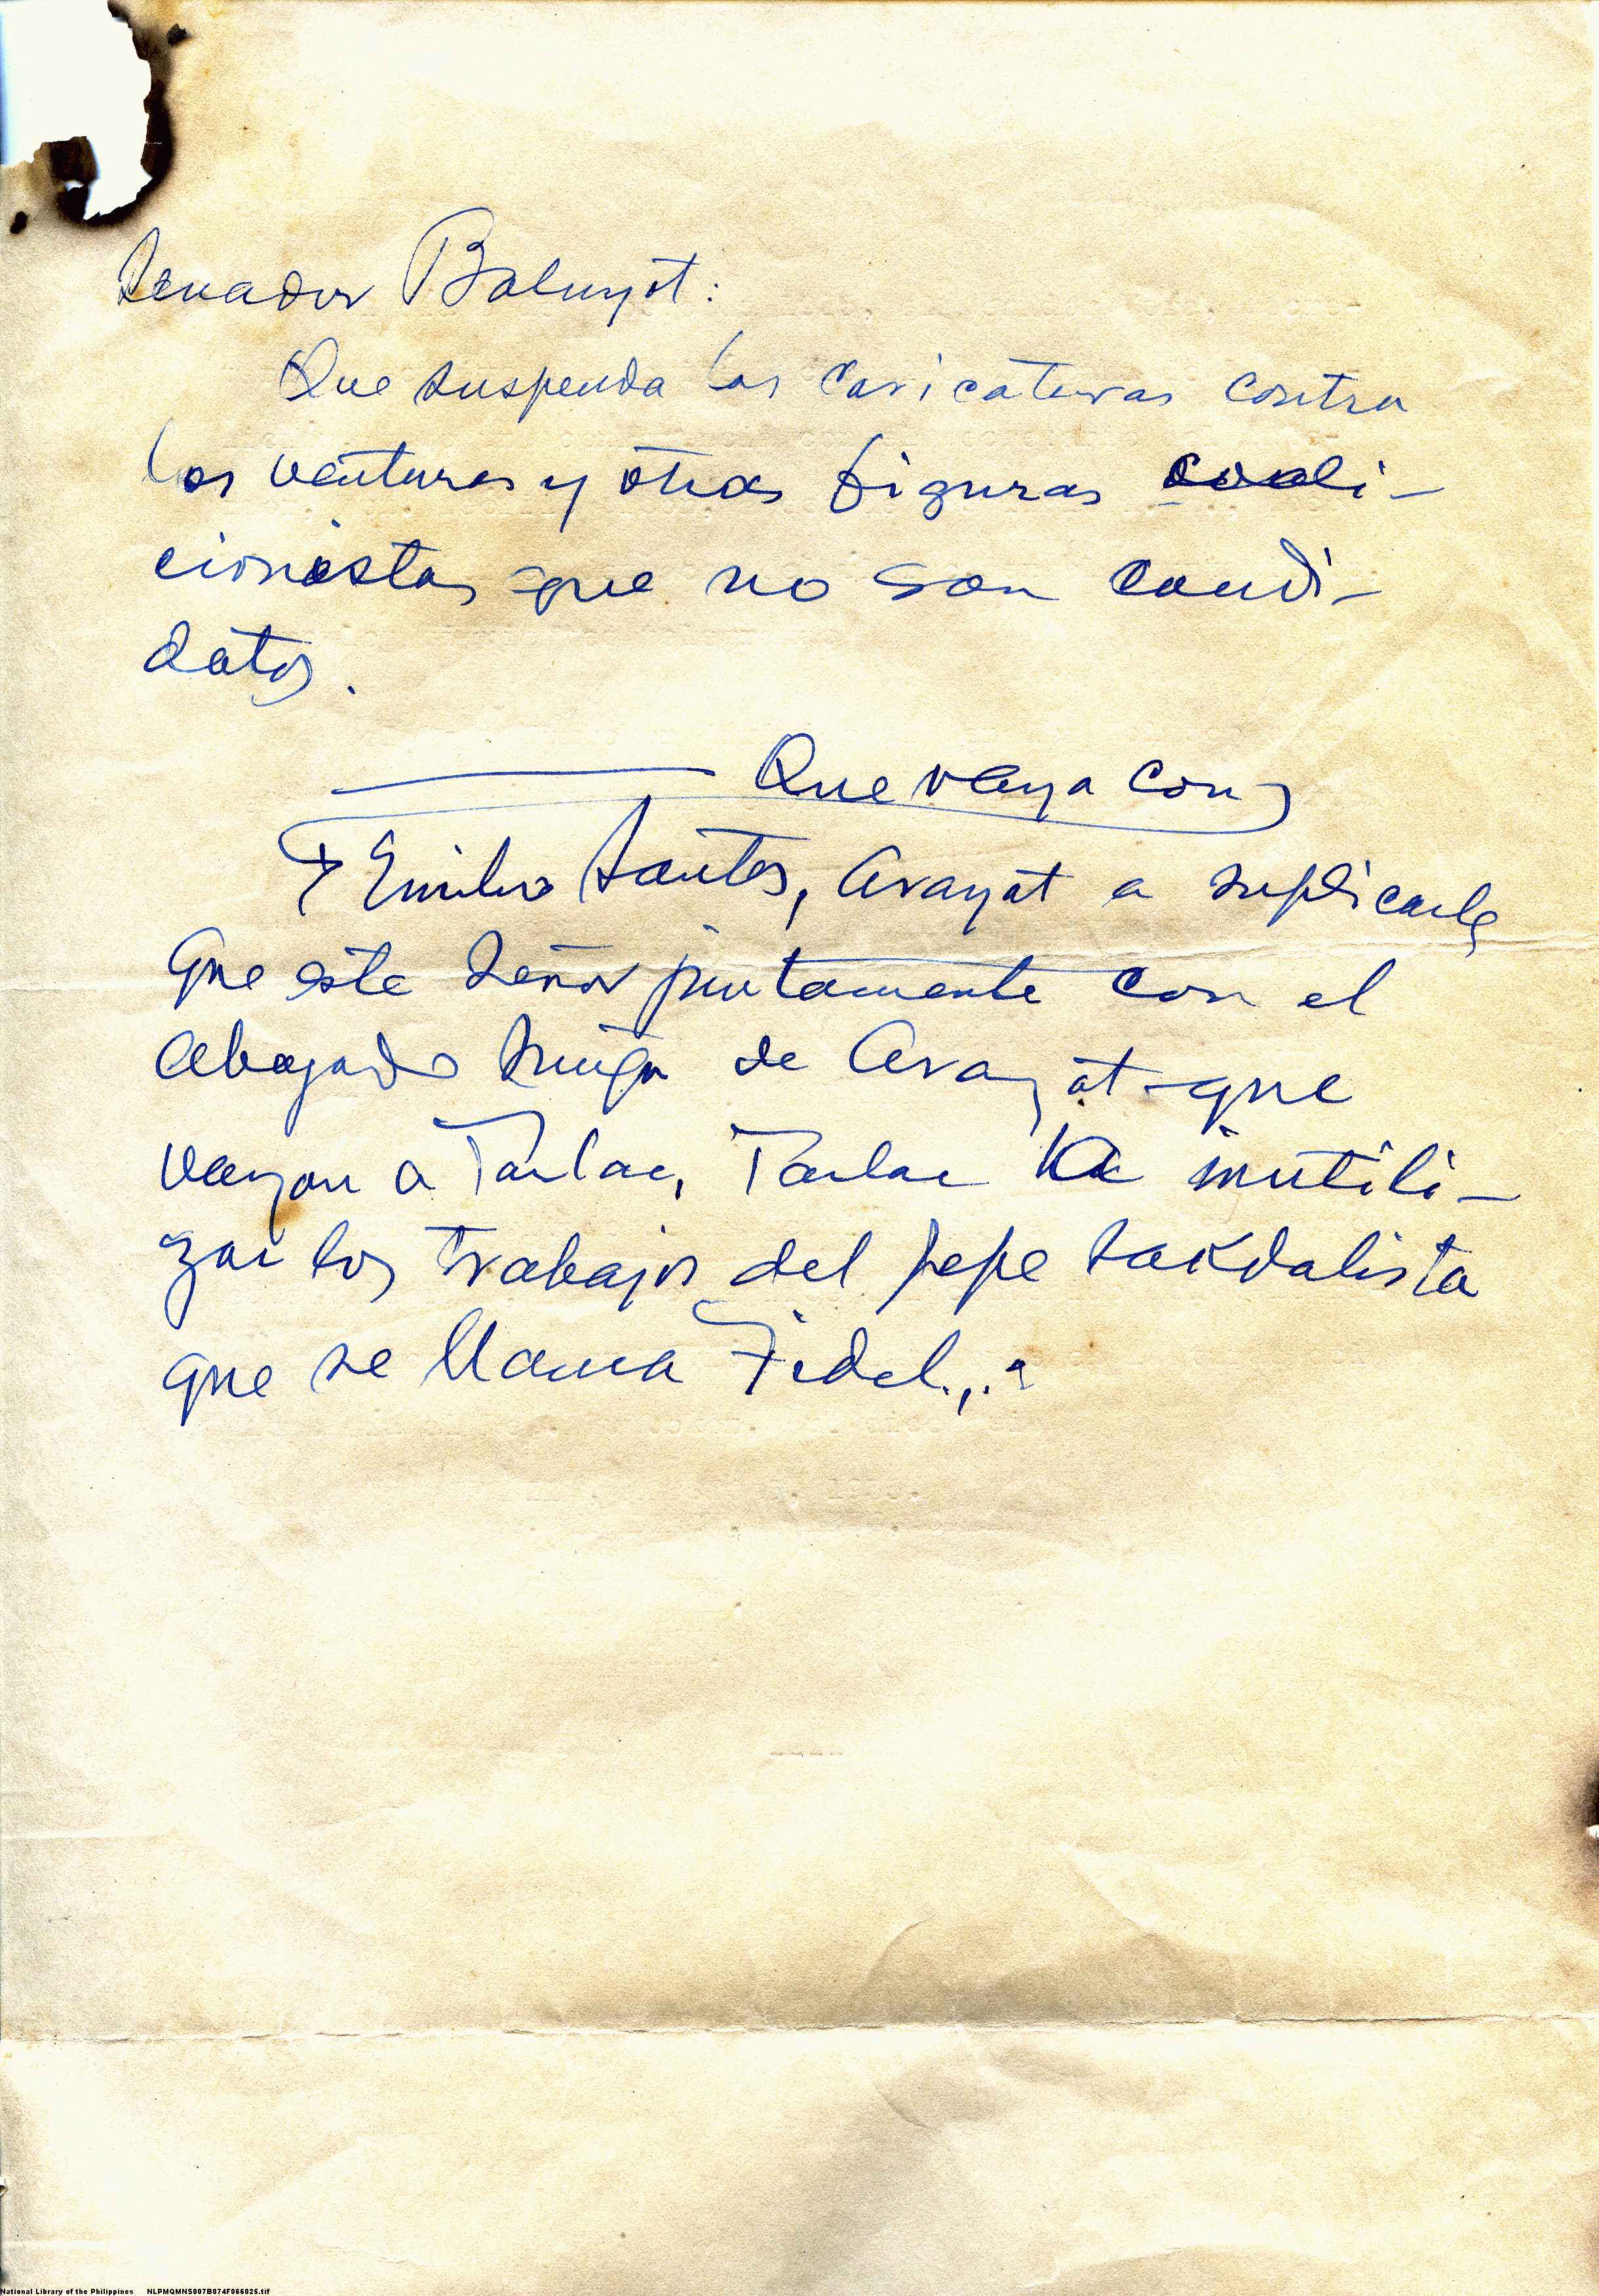 Senador Baluyot:
Que suspenda las caricaturas contra
los venturas y otras figuras coali-
cionistas que no son candi-
datos.
Que vaya con
Emilio Santos, Arayat a suplicarle
que este señor juntamente con el
abogado de Arayat que
vayan a Tarlac, Tarlac a inutili-
zar los trabajos del pepe sakdalista
que se llama Fidel...
National Library of the Philippines NLPMQMNS007B074F066025.tif